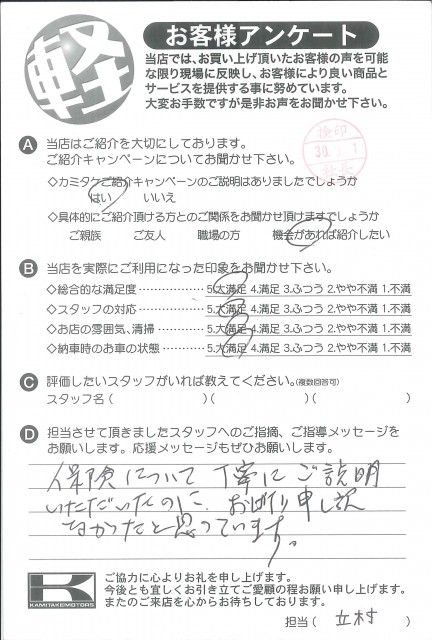 軽
お客様アンケート
当店では、お買い上げ頂いたお客様の声を可能
な限り現場に反映し、お客様により良い商品と
サービスを提供する事に努めています。
大変お手数ですが是非お声をお聞かせ下さい。
検印
30. .1
社長
A 当店はご紹介を大切にしております。
ご紹介キャンペーンについてお聞かせ下さい。
◇カミタケご紹介キャンペーンのご説明はありましたでしょうか
はい いいえ
◇具体的にご紹介頂ける方とのご関係をお聞かせ頂けますでしょうか
ご親族 ご友人 職場の方 機会があれば紹介したい
B 当店を実際にご利用になった印象をお聞かせ下さい。
◇総合的な満足度 5.大満足 4.満足 3.ふつう 2.やや不満 1.不満
◇スタッフの対応 5.大満足 4.満足 3.ふつう 2.やや不満 1.不満
◇お店の雰囲気、清掃 5.大満足 4.満足 3.ふつう 2.やや不満 1.不満
◇納車時のお車の状態 5.大満足 4.満足 3.ふつう 2.やや不満 1.不満
C 評価したいスタッフがいれば教えてください。(複数回答可)
スタッフ名 ( )( )( )
D 担当させて頂きましたスタッフへのご指摘、ご指導メッセージを
お願いします。応援メッセージもぜひお願いします。
保険について 丁寧に ご説明
いただいたのに、 申し訳
なかったと思っています。
K
KAMITAKEMOTORS
ご協力に心よりお礼を申し上げます。
今後とも宜しくお引き立てご愛顧の程お願い申し上げます。
またのご来店を心からお待ちしております。
担当 ( 立村 )